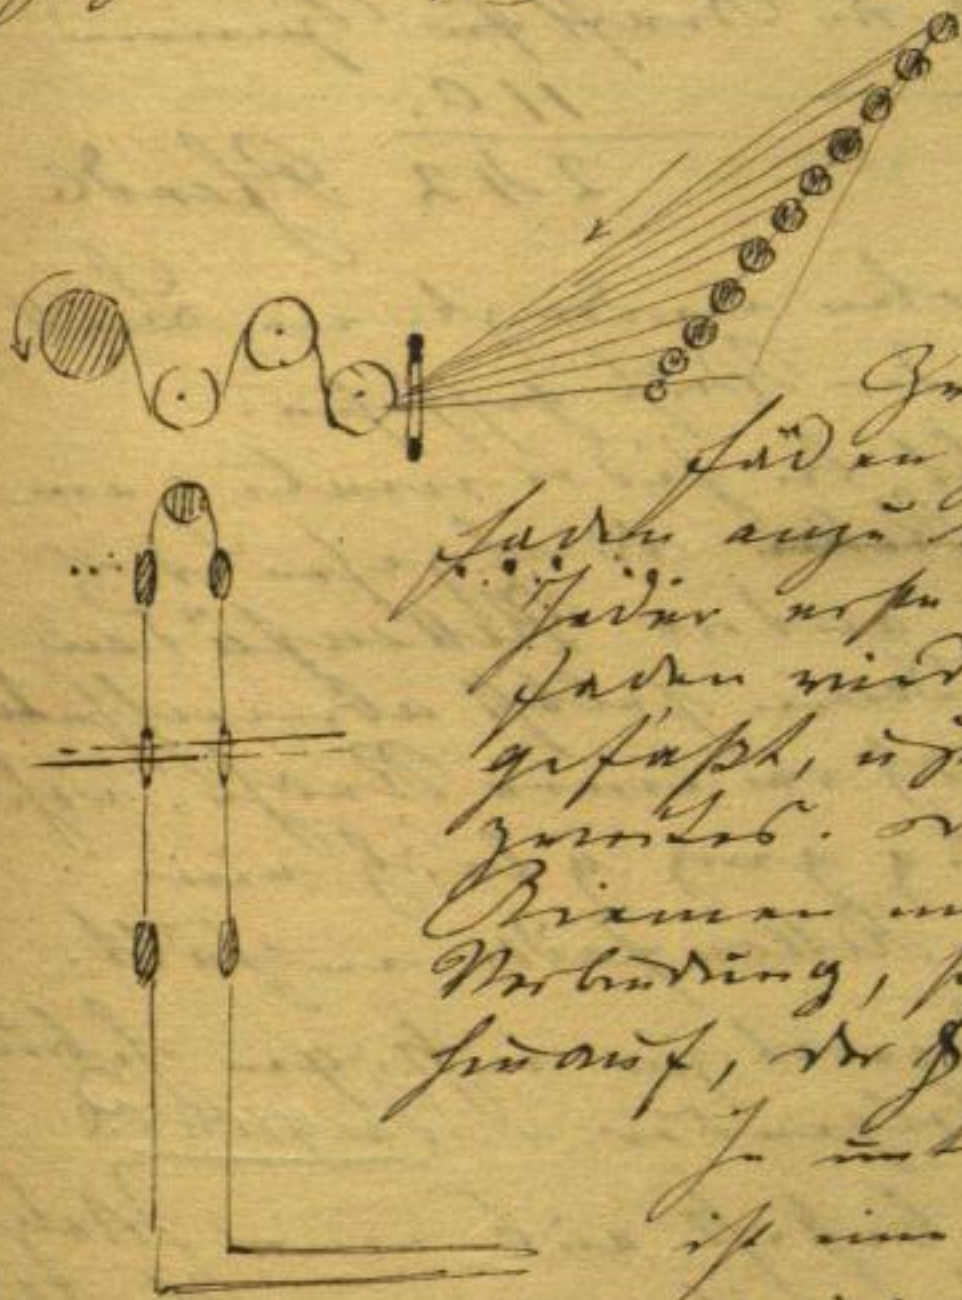 Zw
fäden
faden anzu
Jeder erste
faden wird
gefaßt, u
zweites.
Riemen
Verbindung, s
hinauf, der
In unt
ist eine